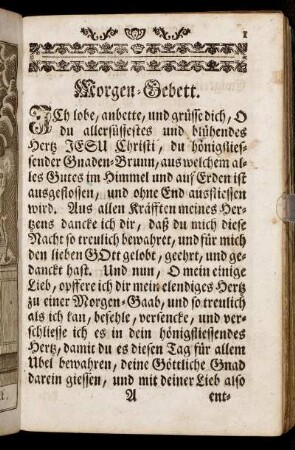 1
Morgen-Gebett.
ICh lobe, anbette, und grüsse dich, O
du allersüssestes und blühendes
Hertz JESU Christi, du hönigflies-
sender Gnaden-Brunn, aus welchem al-
les Gutes im Himmel und auf Erden ist
ausgeflossen, und ohne End ausfliessen
wird. Aus allen Kräfften meines Her-
tzens dancke ich dir, daß du mich diese
Nacht so treulich bewahret, und für mich
den lieben GOtt gelobt, geehrt, und ge-
danckt hast. Und nun, O mein einige
Lieb, opffere ich dir mein elendiges Hertz
zu einer Morgen-Gaab, und so treulich
als ich kan, befehle, versencke, und ver-
schliesse ich es in dein hönigfliessendes
Hertz, damit du es diesen Tag für allem
Ubel bewahren, deine Göttliche Gnad
darein giessen, und mit deiner Lieb also
A ent-